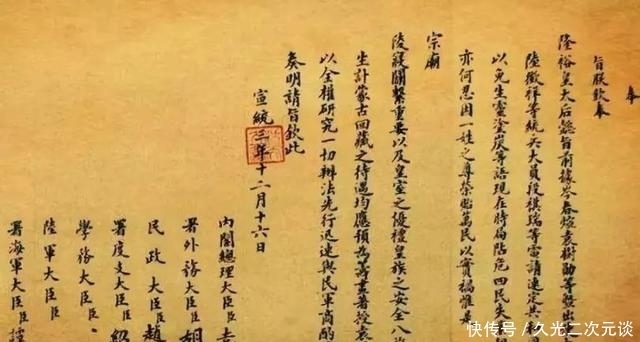 奉
旨朕欽奉
隆裕皇太后懿旨前據岑春煊袁樹勛等暨出
陸徵祥等統兵大員段祺瑞等電請速定共
以免生靈塗炭等語現在時局阽危四民失
亦何忍因一姓之尊榮貽萬民以實禍惟是
宗廟
陵寢關繫重要以及皇室之優禮皇族之安全八
生計蒙古回藏之待遇均應預為籌畫著授袁
以全權研究一切辦法先行迅速與民軍商酌
奏明請旨欽此
宣統三年十二月十六日
內閣總理大臣臣袁
署外務大臣臣胡
民政大臣臣趙
署度支大臣臣紹
學務大臣臣
陸軍大臣臣
署海軍大臣臣譚
快传号／久光二次元谈